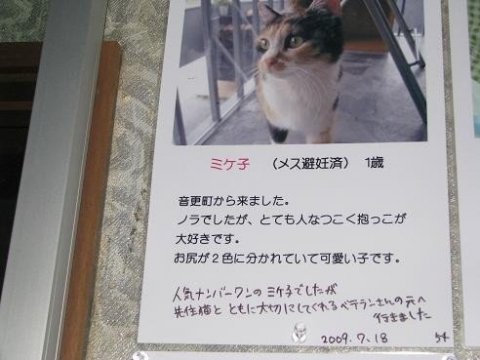 ミケ子 (メス避妊済) 1歳
音更町から来ました。
ノラでしたが、とても人なつこく抱っこが
大好きです。
お尻が2色に分かれていて可愛い子です。
人気ナンバーワンの ミケ子でしたが
先住猫と ともに大切にしてくれるベテランさんの元へ
行きました
2009.7.18